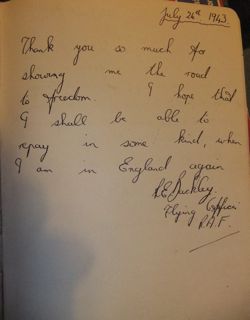 July 24th 1943
Thank you so much for
showing me the road
to freedom. I hope that
I shall be able to
repay in some kind, when
I am in England again
R.E. Buckley
Flying Officer
R.A.F.